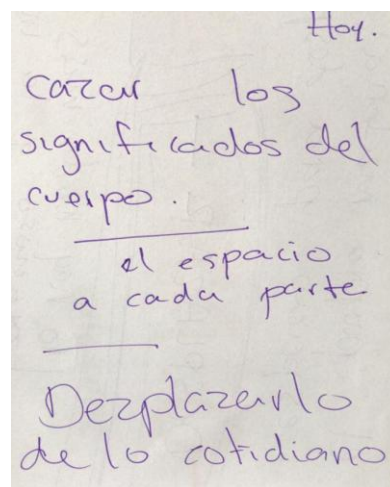 Hoy.
cazar los
significados del
cuerpo.
el espacio
a cada parte
Dezplazarlo
de lo cotidiano